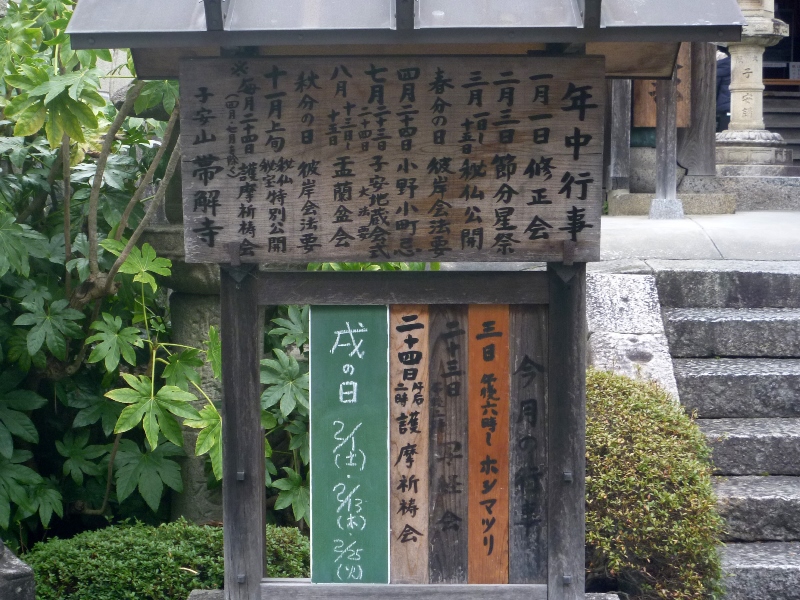 年中行事
一月一日 修正会
二月三日 節分星祭
三月 一日〜十五日 秘仏公開
春分の日 彼岸会法要
四月二十四日 小野小町忌
七月二十三日 二十四日 子安地蔵会式 大法要
八月 十三日〜十五日 盂蘭盆会
秋分の日 彼岸会法要
十一月上旬 秘仏 秘宝 特別公開
※毎月二十四日 護摩祈祷会
(四月、七月を除く)
子安山 帯解寺
今月の行事
三日 午後六時〜 ホシマツリ
二十三日 写経会
二十四日 午后二時 護摩祈祷会
戌の日 2/1(土)・2/13(木)・2/25(火)
子安